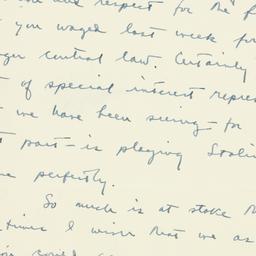 and respect for the f
you waged last week for
ger control law. Certainly
of special interest repres
we have been seeing - for
t part - is playing Stalin
e perfectly.
So much is at stake th
times I wish that we as
could